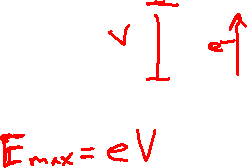 V e⁻
Emax = eV